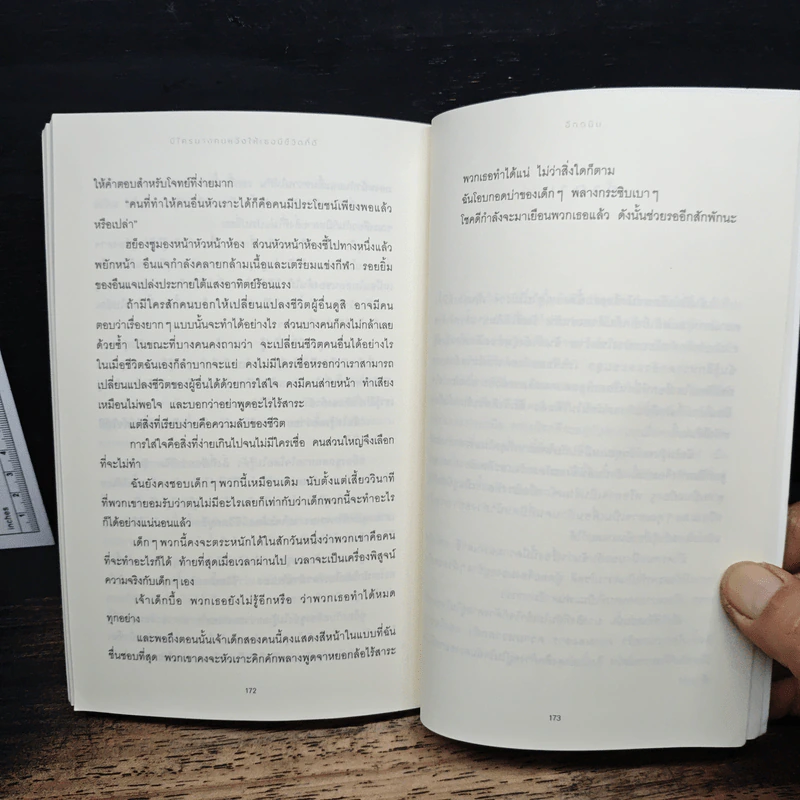 ให้คำตอบสำหรับโจทย์ที่ง่ายมาก
"คนที่ทำให้คนอื่นหัวเราะได้ก็คือคนมีประโยชน์เพียงพอแล้ว
หรือเปล่า"
ฮย็องซูมองหน้าหัวหน้าห้อง ส่วนหัวหน้าห้องชี้ไปทางหนึ่งแล้ว
พยักหน้า อึนแจกำลังคลายกล้ามเนื้อและเตรียมแข่งกีฬา รอยยิ้ม
ของอึนแจเปล่งประกายใต้แสงอาทิตย์ร้อนแรง
ถ้ามีใครสักคนบอกให้เปลี่ยนแปลงชีวิตผู้อื่นดูสิ อาจมีคน
ตอบว่าเรื่องยากๆ แบบนั้นจะทำได้อย่างไร ส่วนบางคนก็คงไม่กล้าเลย
ด้วยซ้ำ ในขณะที่บางคนคงถามว่า จะเปลี่ยนชีวิตคนอื่นได้อย่างไร
ในเมื่อชีวิตฉันเองก็ลำบากจะแย่ คงไม่มีใครเชื่อหรอกว่าเราสามารถ
เปลี่ยนแปลงชีวิตของผู้อื่นได้ด้วยการใส่ใจ คงมีคนส่ายหน้า ทำเสียง
เหมือนไม่พอใจ และบอกว่าอย่าพูดอะไรไร้สาระ
แต่สิ่งที่เรียบง่ายคือความลับของชีวิต
การใส่ใจคือสิ่งที่ง่ายเกินไปจนไม่มีใครเชื่อ คนส่วนใหญ่จึงเลือก
ที่จะไม่ทำ
ฉันยังคงชอบเด็กๆ พวกนี้เหมือนเดิม นับตั้งแต่เสี้ยววินาที
ที่พวกเขายอมรับว่าตนไม่มีอะไรเลยก็เท่ากับว่าเด็กพวกนี้จะทำอะไร
ก็ได้อย่างแน่นอนแล้ว
เด็กๆ พวกนี้คงจะตระหนักได้ในสักวันหนึ่งว่าพวกเขาคือคน
ที่จะทำอะไรก็ได้ ท้ายที่สุดเมื่อเวลาผ่านไป เวลาจะเป็นเครื่องพิสูจน์
ความจริงกับเด็กๆ เอง
เจ้าเด็กบื้อ พวกเธอยังไม่รู้อีกหรือ ว่าพวกเธอทำได้หมด
ทุกอย่าง
และพอถึงตอนนั้นเจ้าเด็กสองคนนี้คงแสดงสีหน้าในแบบที่ฉัน
ชื่นชอบที่สุด พวกเขาคงจะหัวเราะคิกคักพลางพูดจาหยอกล้อไร้สาระ
172
พวกเธอทำได้แน่ ไม่ว่าสิ่งใดก็ตาม
ฉันโอบกอดบ่าของเด็กๆ พลางกระซิบเบาๆ
โชคดีกำลังจะมาเยือนพวกเธอแล้ว ดังนั้นช่วยรออีกสักพักนะ
173
inches
1
2
3
4